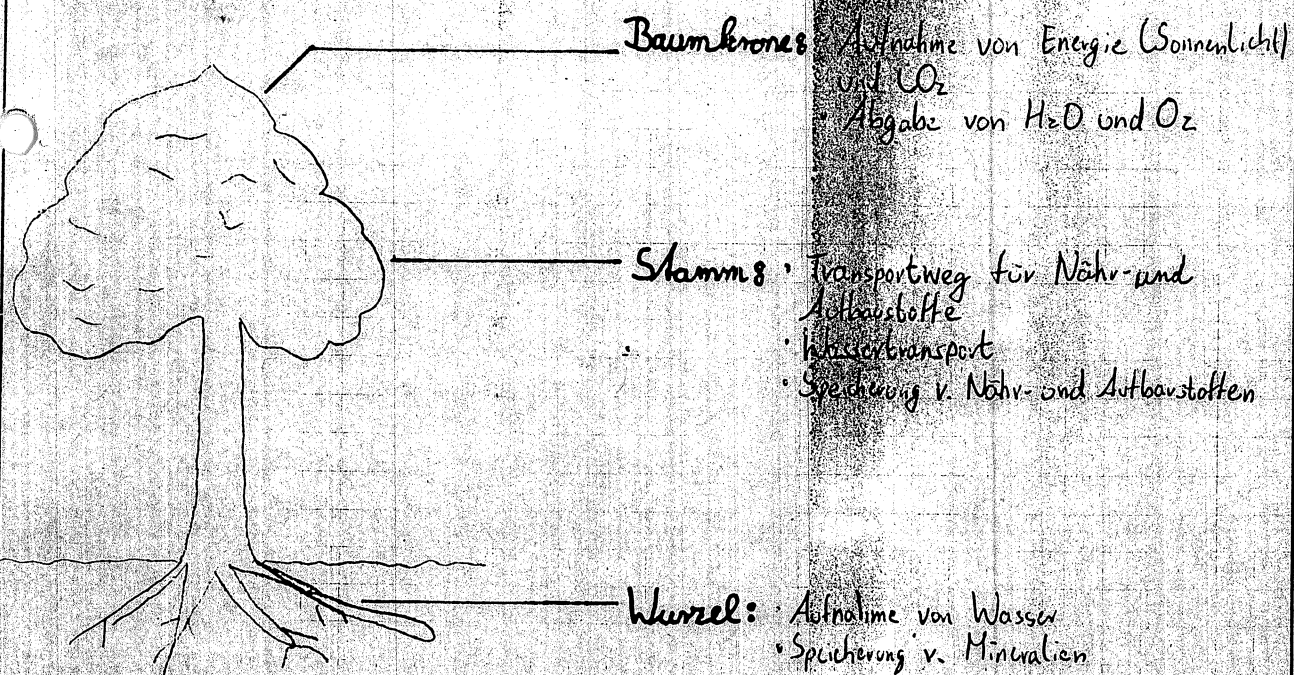 Baumkrone: • Aufnahme von Energie (Sonnenlicht)
und CO₂
• Abgabe von H₂O und O₂
Stamm: • Transportweg für Nähr- und
Aufbaustoffe
• Wassertransport
• Speicherung v. Nähr- und Aufbaustoffen
Wurzel: • Aufnahme von Wasser
• Speicherung v. Mineralien